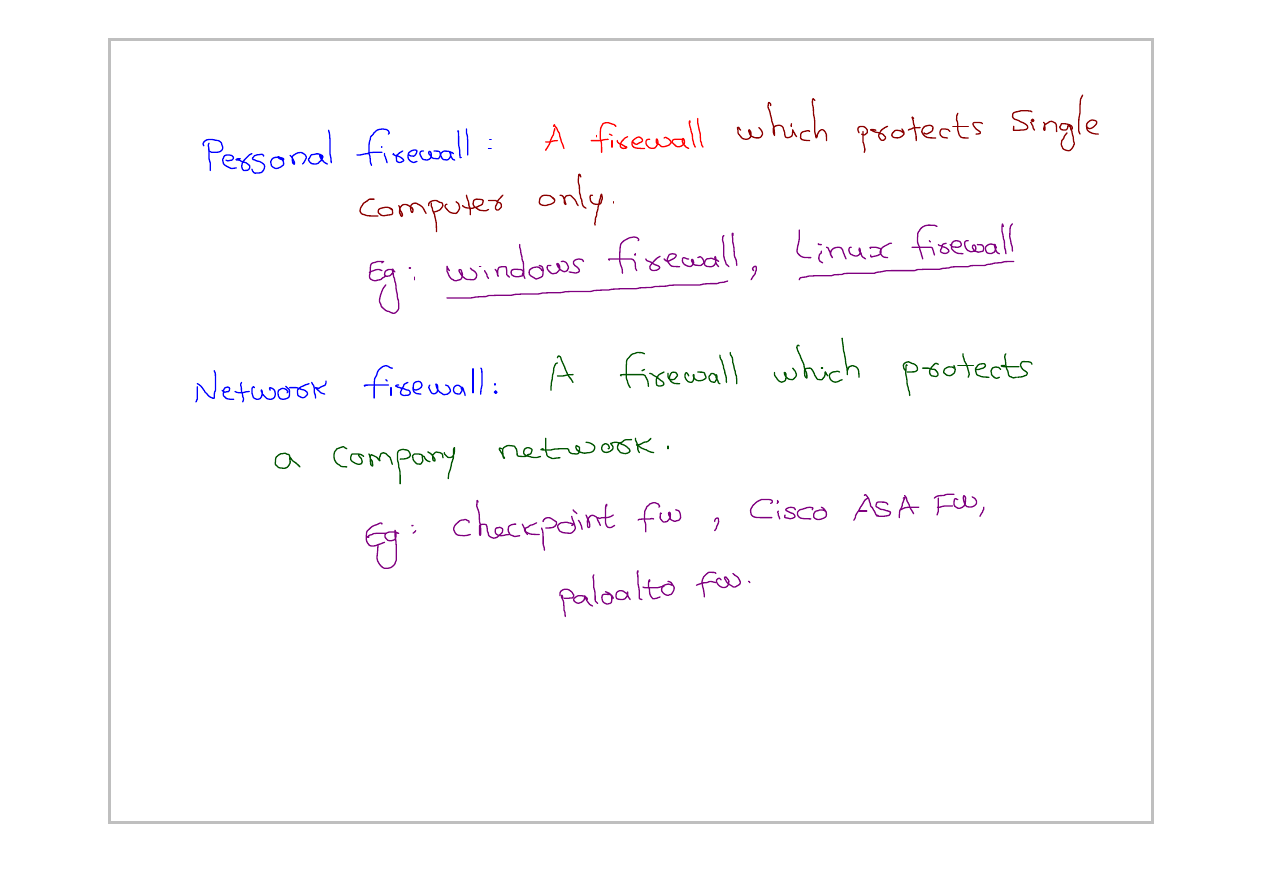 Personal firewall: A firewall which protects Single
computer only.
Eg: windows firewall, Linux firewall
Network firewall: A firewall which protects
a company network.
Eg: checkpoint fw, Cisco ASA Fw,
paloalto fw.